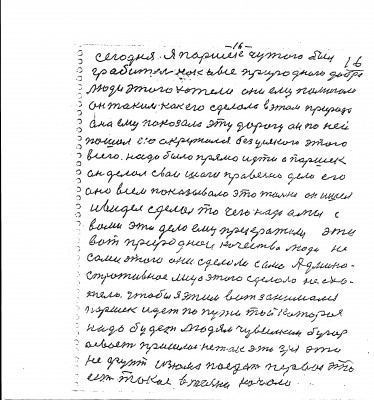 -16-
сегодня. Я паршек чутого был 16
грабител какое природного добра
люди этого хотели они ему помогали
он таким как его сделала в этом природа
она ему показала эту дорогу он по ней
пошол с ею окружался без усякого этого
всего. надо было прямо идти а паршек
он делал сваи шаги правельно дело его
оно всем показывало это толка он ишел
и видел сделал то чего надо
вами это дело ему прекратили эти
вот природнаи качества люди не
сами этого они сделали сама Админи-
стротивное лицо этого сделало не схо-
тела, чтобы я этим вот занимался
паршек идет по пути той которая
надо будет людям чувилким бугор
пришлос не так это зря эта
не фрукт поедат первое это
ест такое в жизни начало